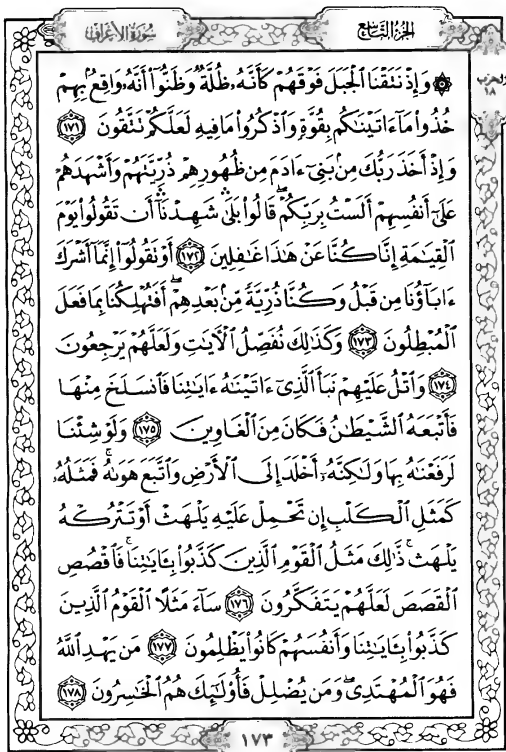 سورة الأعراف
الجزء التاسع
الحزب
١٨
۞ وَإِذْ نَتَقْنَا ٱلْجَبَلَ فَوْقَهُمْ كَأَنَّهُۥ ظُلَّةٌ وَظَنُّوٓا۟ أَنَّهُۥ وَاقِعٌۢ بِهِمْ
خُذُوا۟ مَآ ءَاتَيْنَٰكُم بِقُوَّةٍ وَٱذْكُرُوا۟ مَا فِيهِ لَعَلَّكُمْ تَتَّقُونَ ١٧١
وَإِذْ أَخَذَ رَبُّكَ مِنۢ بَنِىٓ ءَادَمَ مِن ظُهُورِهِمْ ذُرِّيَّتَهُمْ وَأَشْهَدَهُمْ
عَلَىٰٓ أَنفُسِهِمْ أَلَسْتُ بِرَبِّكُمْ ۖ قَالُوا۟ بَلَىٰ ۛ شَهِدْنَآ ۛ أَن تَقُولُوا۟ يَوْمَ
ٱلْقِيَٰمَةِ إِنَّا كُنَّا عَنْ هَٰذَا غَٰفِلِينَ ١٧٢ أَوْ تَقُولُوٓا۟ إِنَّمَآ أَشْرَكَ
ءَابَآؤُنَا مِن قَبْلُ وَكُنَّا ذُرِّيَّةً مِّنۢ بَعْدِهِمْ ۖ أَفَتُهْلِكُنَا بِمَا فَعَلَ
ٱلْمُبْطِلُونَ ١٧٣ وَكَذَٰلِكَ نُفَصِّلُ ٱلْءَايَٰتِ وَلَعَلَّهُمْ يَرْجِعُونَ
١٧٤ وَٱتْلُ عَلَيْهِمْ نَبَأَ ٱلَّذِىٓ ءَاتَيْنَٰهُ ءَايَٰتِنَا فَٱنسَلَخَ مِنْهَا
فَأَتْبَعَهُ ٱلشَّيْطَٰنُ فَكَانَ مِنَ ٱلْغَاوِينَ ١٧٥ وَلَوْ شِئْنَا
لَرَفَعْنَٰهُ بِهَا وَلَٰكِنَّهُۥٓ أَخْلَدَ إِلَى ٱلْأَرْضِ وَٱتَّبَعَ هَوَىٰهُ ۚ فَمَثَلُهُۥ
كَمَثَلِ ٱلْكَلْبِ إِن تَحْمِلْ عَلَيْهِ يَلْهَثْ أَوْ تَتْرُكْهُ
يَلْهَث ۚ ذَّٰلِكَ مَثَلُ ٱلْقَوْمِ ٱلَّذِينَ كَذَّبُوا۟ بِـَٔايَٰتِنَا ۚ فَٱقْصُصِ
ٱلْقَصَصَ لَعَلَّهُمْ يَتَفَكَّرُونَ ١٧٦ سَآءَ مَثَلًا ٱلْقَوْمُ ٱلَّذِينَ
كَذَّبُوا۟ بِـَٔايَٰتِنَا وَأَنفُسَهُمْ كَانُوا۟ يَظْلِمُونَ ١٧٧ مَن يَهْدِ ٱللَّهُ
فَهُوَ ٱلْمُهْتَدِى ۖ وَمَن يُضْلِلْ فَأُو۟لَٰٓئِكَ هُمُ ٱلْخَٰسِرُونَ ١٧٨
١٧٣